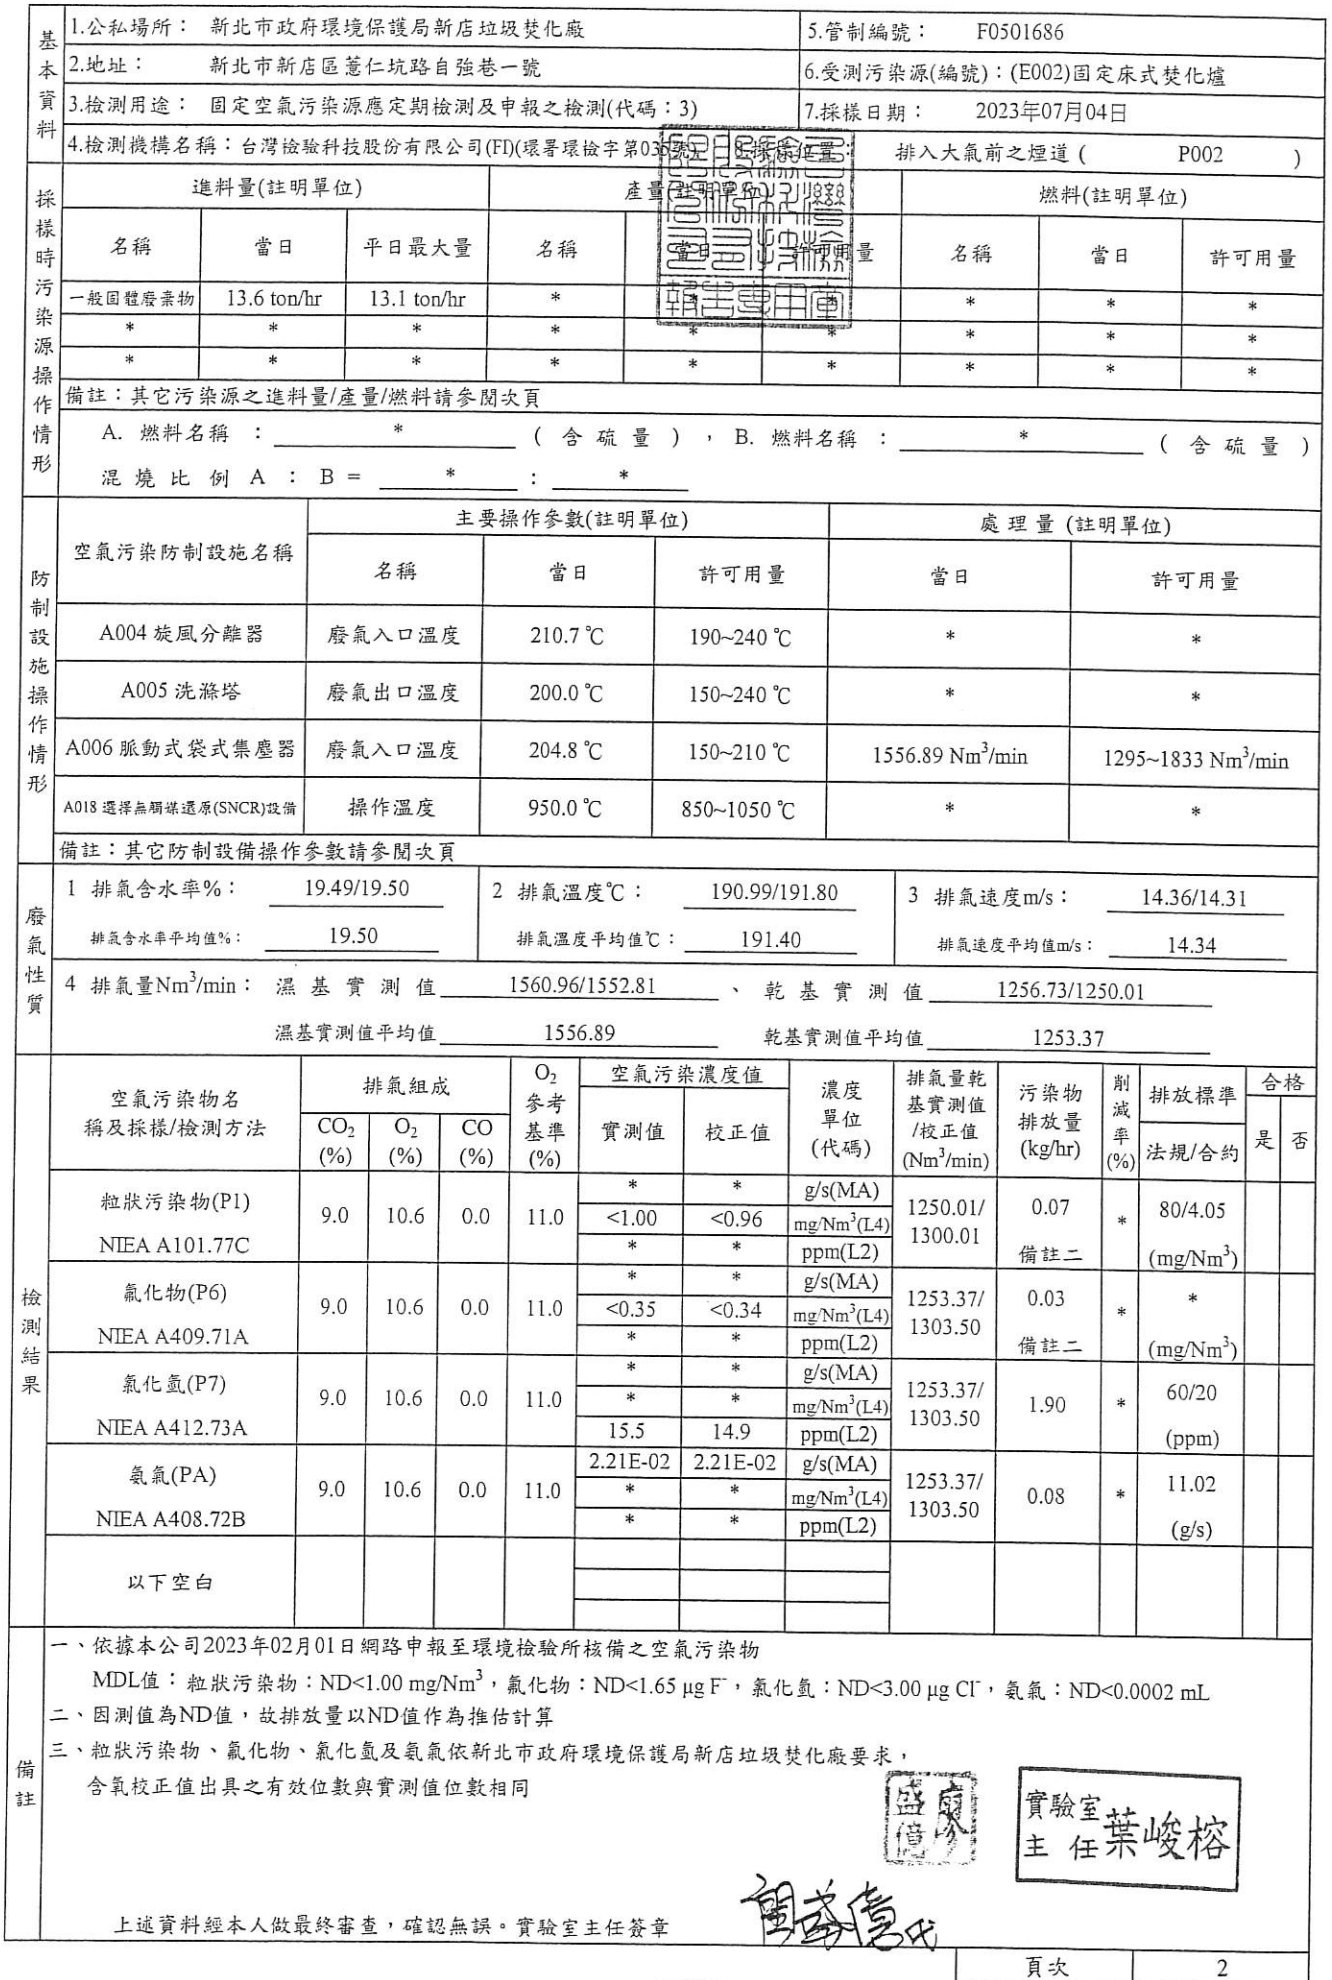 基本資料
1.公私場所： 新北市政府環境保護局新店垃圾焚化廠
5.管制編號： F0501686
2.地址： 新北市新店區薏仁坑路自強巷一號
6.受測污染源(編號)：(E002)固定床式焚化爐
3.檢測用途： 固定空氣污染源應定期檢測及申報之檢測(代碼：3)
7.採樣日期： 2023年07月04日
4.檢測機構名稱：台灣檢驗科技股份有限公司(FI)(環署環檢字第035號)
8.採樣位置： 排入大氣前之煙道 ( P002 )
採樣時污染源操作情形
進料量(註明單位) 產量(註明單位) 燃料(註明單位)
名稱 當日 平日最大量 名稱 當日 許可用量 名稱 當日 許可用量
一般固體廢棄物 13.6 ton/hr 13.1 ton/hr * * * * * *
* * * * * * * * *
* * * * * * * * *
備註：其它污染源之進料量/產量/燃料請參閱次頁
A. 燃料名稱 ： * ( 含 硫 量 ) ， B. 燃料名稱 ： * ( 含 硫 量 )
混 燒 比 例 A ： B = * : *
防制設施操作情形
空氣污染防制設施名稱 主要操作參數(註明單位) 處理量 (註明單位)
名稱 當日 許可用量 當日 許可用量
A004 旋風分離器 廢氣入口溫度 210.7 ℃ 190~240 ℃ * *
A005 洗滌塔 廢氣出口溫度 200.0 ℃ 150~240 ℃ * *
A006 脈動式袋式集塵器 廢氣入口溫度 204.8 ℃ 150~210 ℃ 1556.89 Nm³/min 1295~1833 Nm³/min
A018 選擇無觸媒還原(SNCR)設備 操作溫度 950.0 ℃ 850~1050 ℃ * *
備註：其它防制設備操作參數請參閱次頁
廢氣性質
1 排氣含水率%： 19.49/19.50 2 排氣溫度℃： 190.99/191.80 3 排氣速度m/s： 14.36/14.31
排氣含水率平均值%： 19.50 排氣溫度平均值℃： 191.40 排氣速度平均值m/s： 14.34
4 排氣量Nm³/min： 濕 基 實 測 值 1560.96/1552.81 、 乾 基 實 測 值 1256.73/1250.01
濕基實測值平均值 1556.89 乾基實測值平均值 1253.37
檢測結果
空氣污染物名稱及採樣/檢測方法 排氣組成 O₂參考基準(%) 空氣污染濃度值 濃度單位(代碼) 排氣量乾基實測值/校正值(Nm³/min) 污染物排放量(kg/hr) 削減率(%) 排放標準 合格
CO₂(%) O₂(%) CO(%) 實測值 校正值 法規/合約 是 否
粒狀污染物(P1) NIEA A101.77C 9.0 10.6 0.0 11.0
* * g/s(MA)
<1.00 <0.96 mg/Nm³(L4)
* * ppm(L2)
1250.01/1300.01 0.07 備註二 * 80/4.05 (mg/Nm³)
氟化物(P6) NIEA A409.71A 9.0 10.6 0.0 11.0
* * g/s(MA)
<0.35 <0.34 mg/Nm³(L4)
* * ppm(L2)
1253.37/1303.50 0.03 備註二 * * (mg/Nm³)
氯化氫(P7) NIEA A412.73A 9.0 10.6 0.0 11.0
* * g/s(MA)
* * mg/Nm³(L4)
15.5 14.9 ppm(L2)
1253.37/1303.50 1.90 * 60/20 (ppm)
氨氣(PA) NIEA A408.72B 9.0 10.6 0.0 11.0
2.21E-02 2.21E-02 g/s(MA)
* * mg/Nm³(L4)
* * ppm(L2)
1253.37/1303.50 0.08 * 11.02 (g/s)
以下空白
備註
一、依據本公司2023年02月01日網路申報至環境檢驗所核備之空氣污染物
MDL值：粒狀污染物：ND<1.00 mg/Nm³，氟化物：ND<1.65 μg F⁻，氯化氫：ND<3.00 μg Cl⁻，氨氣：ND<0.0002 mL
二、因測值為ND值，故排放量以ND值作為推估計算
三、粒狀污染物、氟化物、氯化氫及氨氣依新北市政府環境保護局新店垃圾焚化廠要求，
含氧校正值出具之有效位數與實測值位數相同
實驗室主任 葉峻榕
上述資料經本人做最終審查，確認無誤。實驗室主任簽章
頁次 2